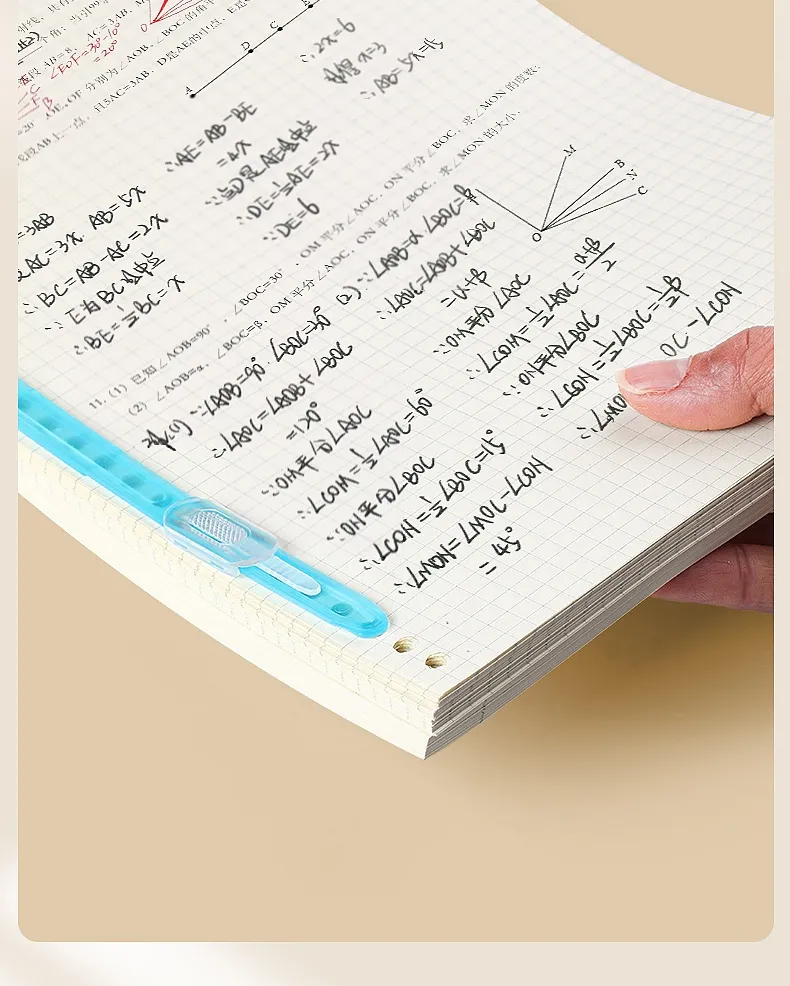 =20°
A
D
C
∴AE=AB-BE
=4x
∵D是AE的中点
∴DE=½AE=2x
∴DE=6
∴2x=6
解得x=3
∴AB=5x=15
=3AB
AC=3x AB=5x
∴BC=AB-AC=2x
∵E为BC的中点
∴BE=½BC=x
11. (1) 已知∠AOB=90°，∠BOC=30°，OM 平分∠AOC，ON 平分∠BOC，求∠MON 的度数；
(2) ∠AOB=α，∠BOC=β，OM 平分∠AOC，ON 平分∠BOC，求∠MON 的大小．
M
B
N
C
O
(1) ∵∠AOB=90°，∠BOC=30°
∴∠AOC=∠AOB+∠BOC
=120°
∵OM平分∠AOC
∴∠COM=½∠AOC=60°
∵ON平分∠BOC
∴∠CON=½∠BOC=15°
∴∠MON=∠MOC-∠CON
=45°
(2) ∵∠AOB=α ∠BOC=β
∴∠AOC=∠AOB+∠BOC
=α+β
∵OM平分∠AOC
∴∠COM=½∠AOC=(α+β)/2
∵ON平分∠BOC
∴∠CON=½∠BOC=½β
∴∠MO OC-∠CON